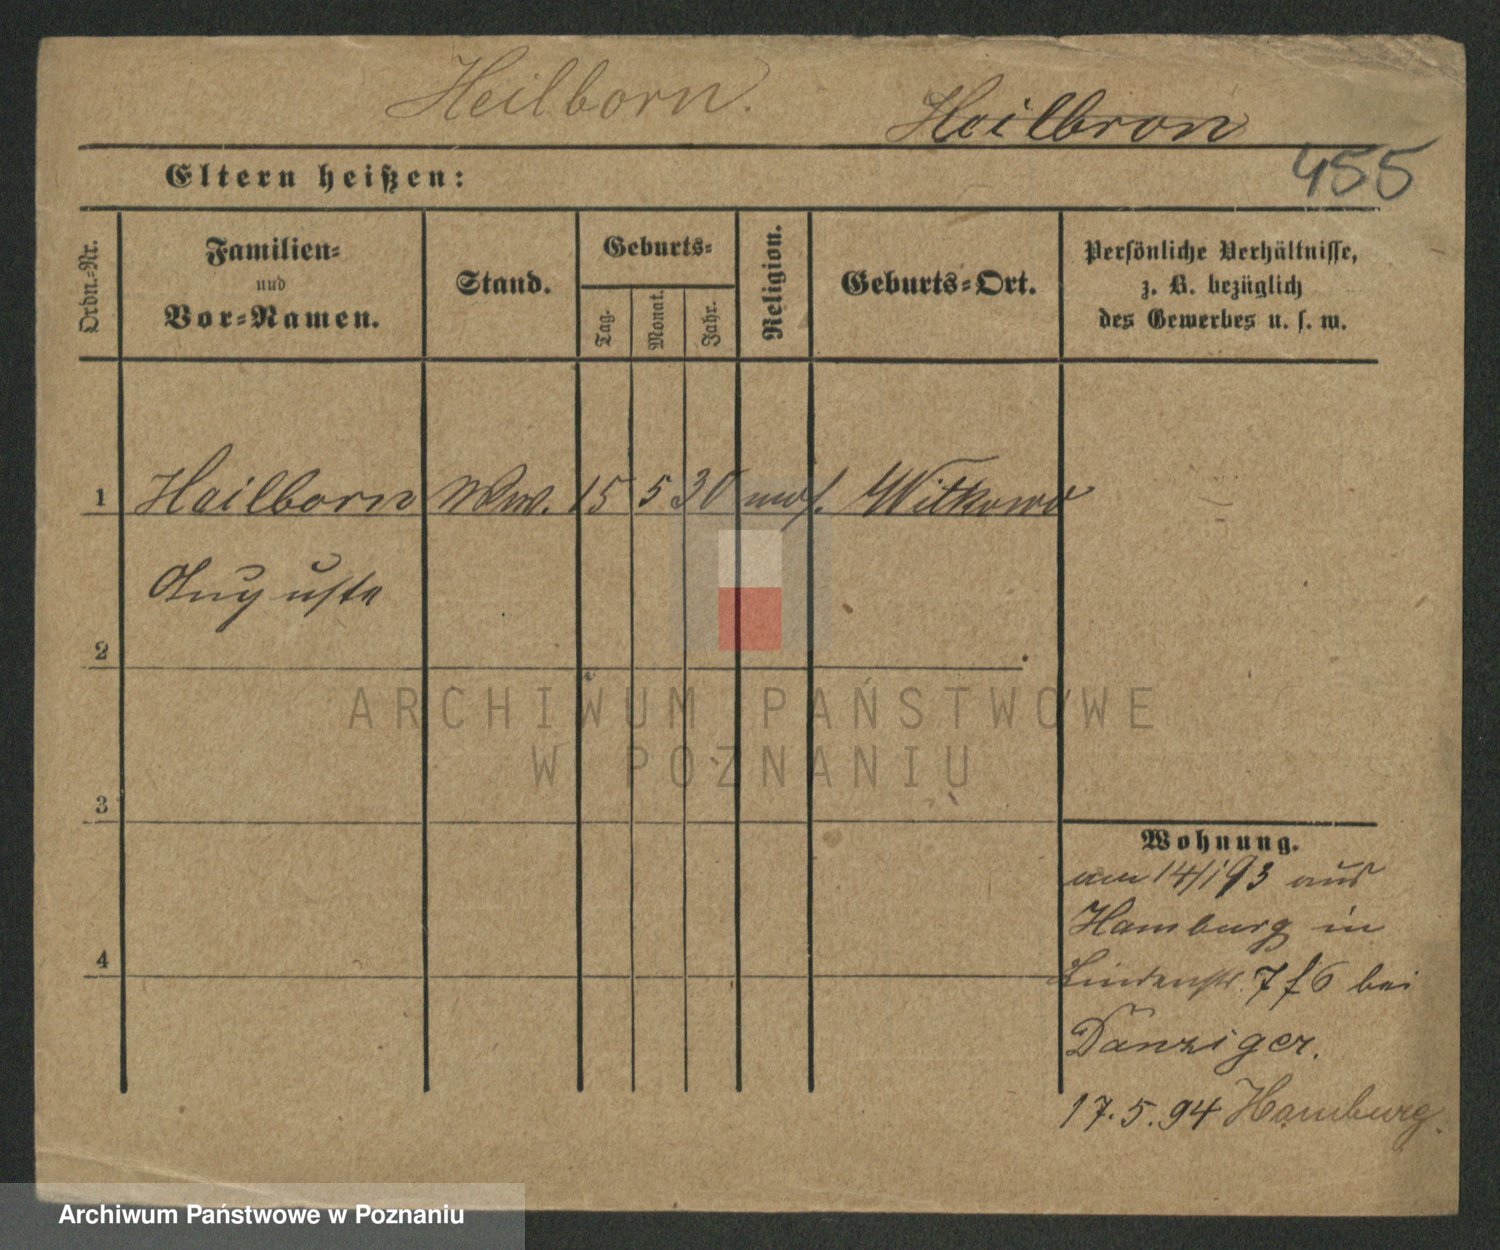 Heilborn.
Heilbron
455
Eltern heißen:
Ordn.-Nr.
Familien-
und
Vor-Namen.
Stand.
Geburts-
Tag.
Monat.
Jahr.
Religion.
Geburts-Ort.
Persönliche Verhältnisse,
z. B. bezüglich
des Gewerbes u. s. w.
1 Heilborn Ww. 15 5 30 mos. Witkowo
Auguste
2
3
4
Wohnung.
am 14/1 93 aus
Hamburg in
Lindenstr. 7 f 6 bei
Danziger.
17.5.94 Hamburg.
ARCHIWUM PAŃSTWOWE
W POZNANIU
Archiwum Państwowe w Poznaniu